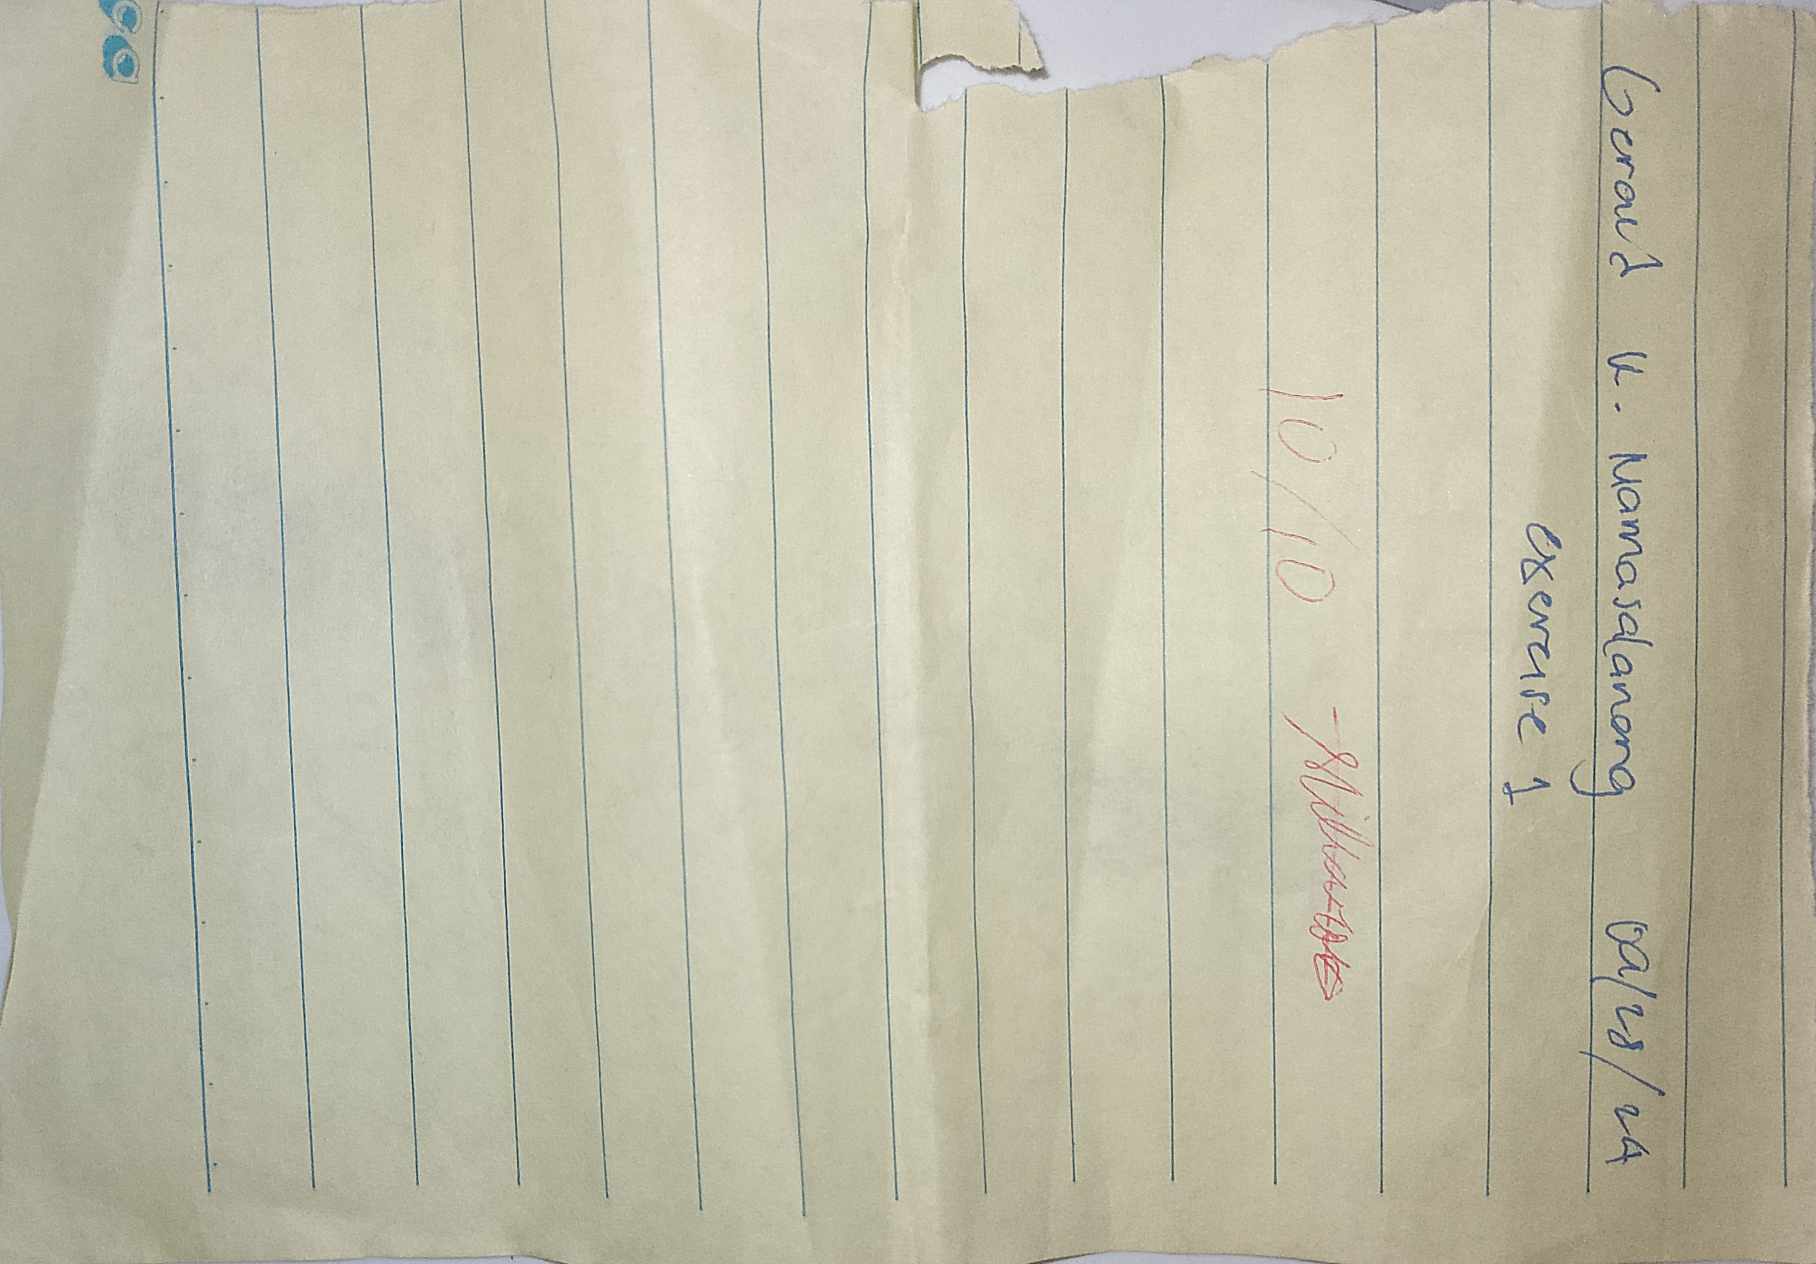 Gerald K. Namasalanang 09/28/24
exercise 1
10/10